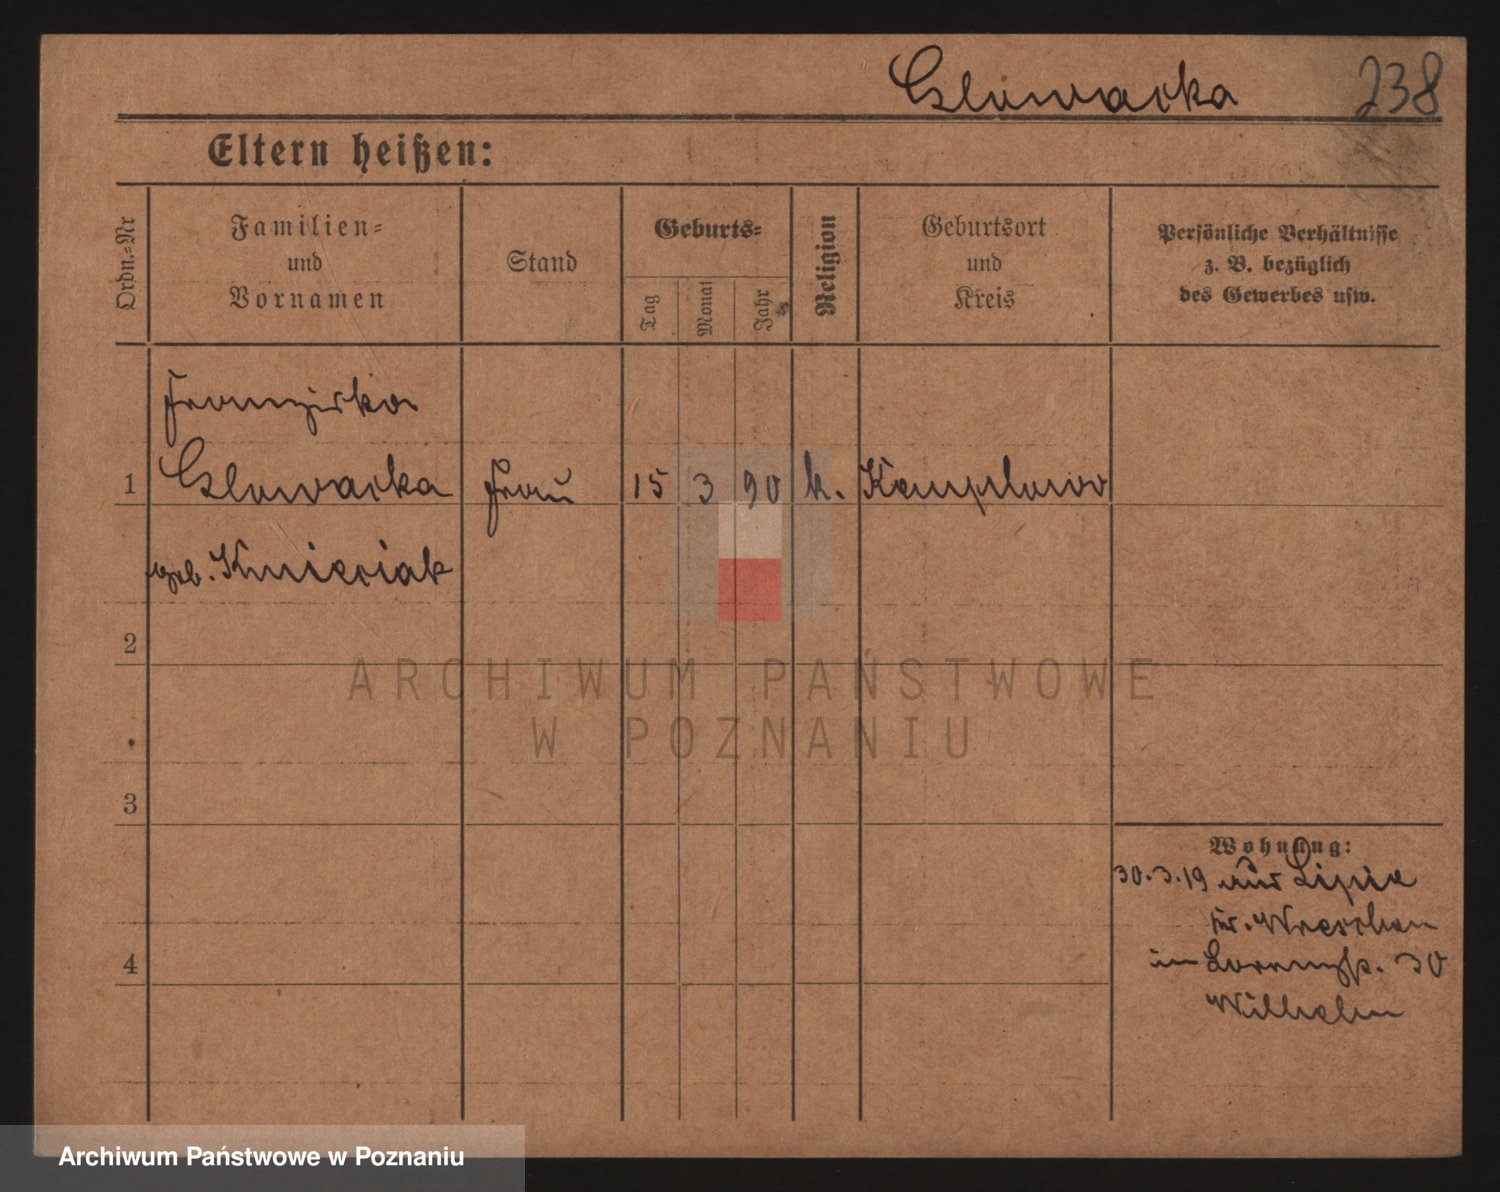 Glowacka 238
Eltern heißen:
Ordn.-Nr
Familien-
und
Vornamen
Stand
Geburts-
Tag
Monat
Jahr
Religion
Geburtsort
und
Kreis
Persönliche Verhältnisse
z. B. bezüglich
des Gewerbes usw.
Franziska
1 Glowacka Frau 15 3 90 k.
geb. Kmieciak
2
3
4
Wohnung:
30.3.19 aus Lipie
Kr. Wreschen
30
Wilhelm
ARCHIWUM PAŃSTWOWE
W POZNANIU
Archiwum Państwowe w Poznaniu